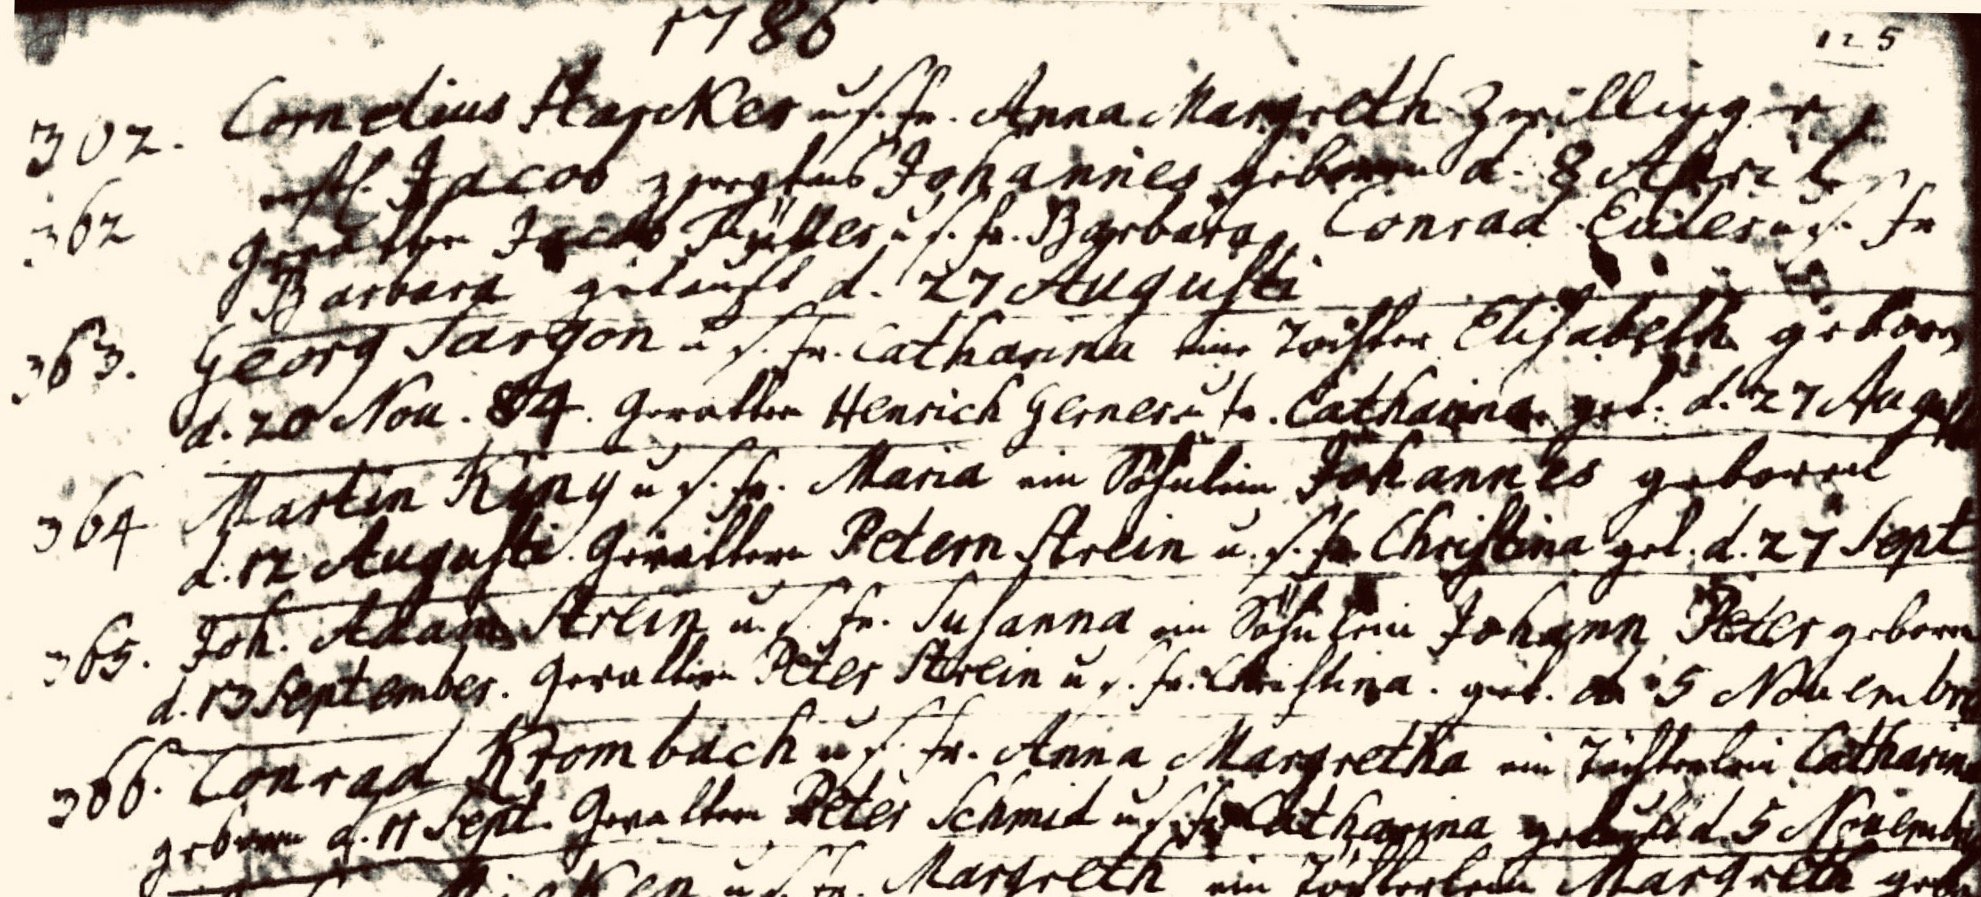 1786
125
302. Cornelius Starckes u. s. fr. Anna Margreth Zwillinge
362 erstl. Jacob zweytens Johannes geboren d. 8 April
Gevattern Jacob u. s. fr. Barbara, Conrad u. s. fr
Barbara getauft d. 27 Augusti
363. Georg Sargon u. s. fr. Catharina eine Tochter Elisabeth geboren
d. 20 Nov. 84. Gevattern Henrich Gerner u. fr. Catharina get. d. 27 August
364 Martin King u. s. fr. Maria ein Söhnlein Johannes geboren
d. 12 Augusti. Gevattern Petern Strein u. s. fr. Christina get. d. 27 Sept
365. Joh. Adam Strein u. s. fr. Susanna ein Söhnlein Johann Peter geboren
d. 13 September. Gevattern Peter Strein u. s. fr. Christina. get. 5 Novembr
366. Conrad Krombach u. s. fr. Anna Margretha ein Töchterlein Catharina
geboren d. 11 Sept. Gevattern Peter Schmid u. s. fr. Catharina getauft d. 5 November
u. s. fr. Margreth ein Töchterlein Margreth geb